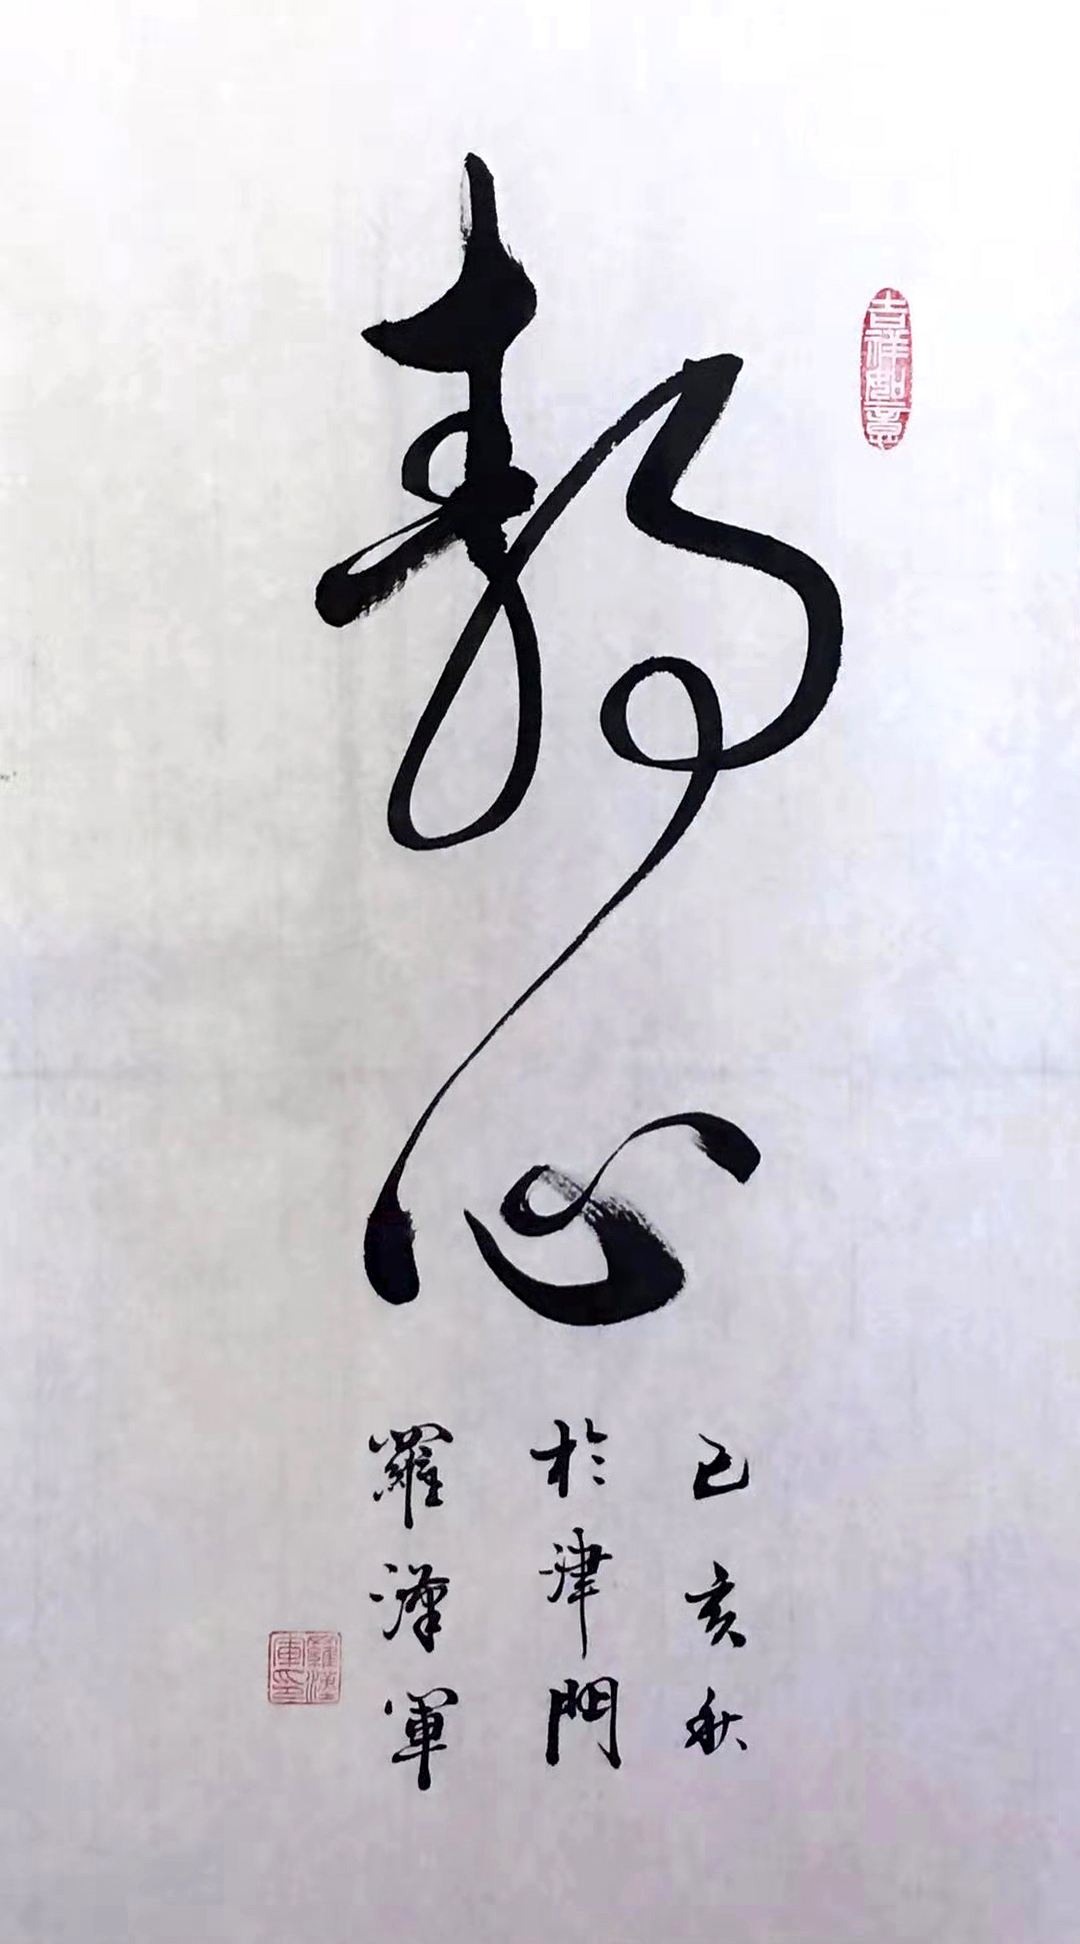 静心
吉祥如意
己亥秋
於津門
羅漢軍
羅漢軍印